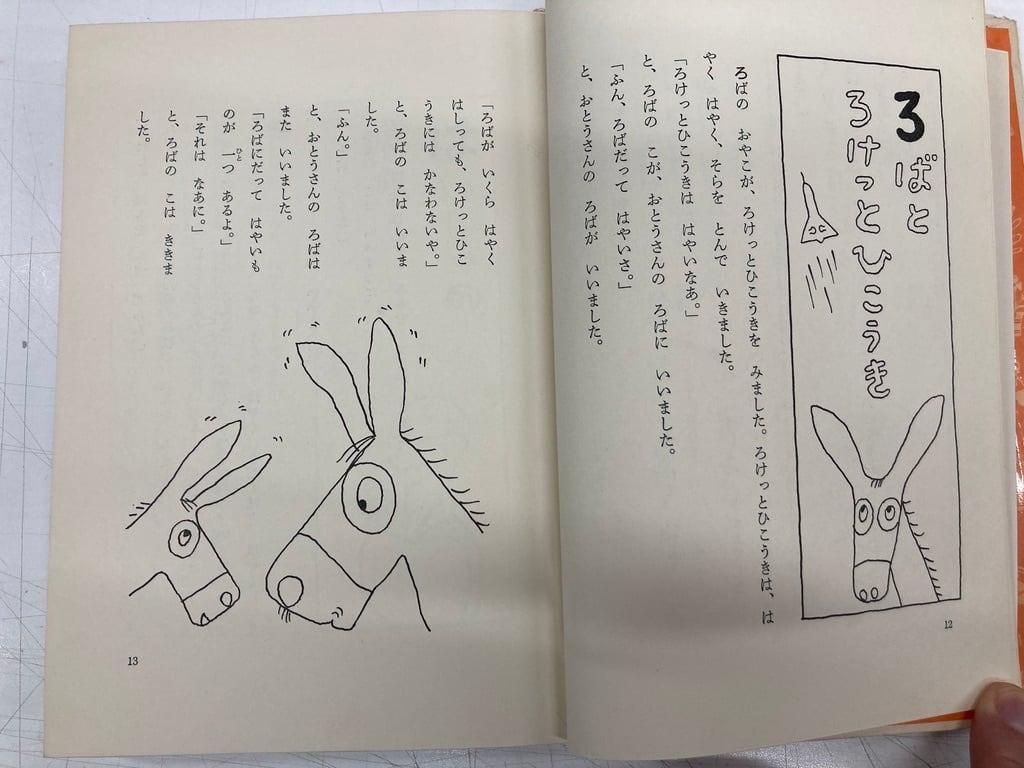 ろばと
ろけっとひこうき
ろばの　おやこが、ろけっとひこうきを　みました。ろけっとひこうきは、は
やく　はやく、そらを　とんで　いきました。
「ろけっとひこうきは　はやいなあ。」
と、ろばの　こが、おとうさんの　ろばに　いいました。
「ふん、ろばだって　はやいさ。」
と、おとうさんの　ろばが　いいました。
12
「ろばが　いくら　はやく
はしっても、ろけっとひこ
うきには　かなわないや。」
と、ろばの　こは　いいま
した。
「ふん。」
と、おとうさんの　ろばは
また　いいました。
「ろばにだって　はやいも
のが　一つ　あるよ。」
ひと
「それは　なあに。」
と、ろばの　こは　ききま
した。
13